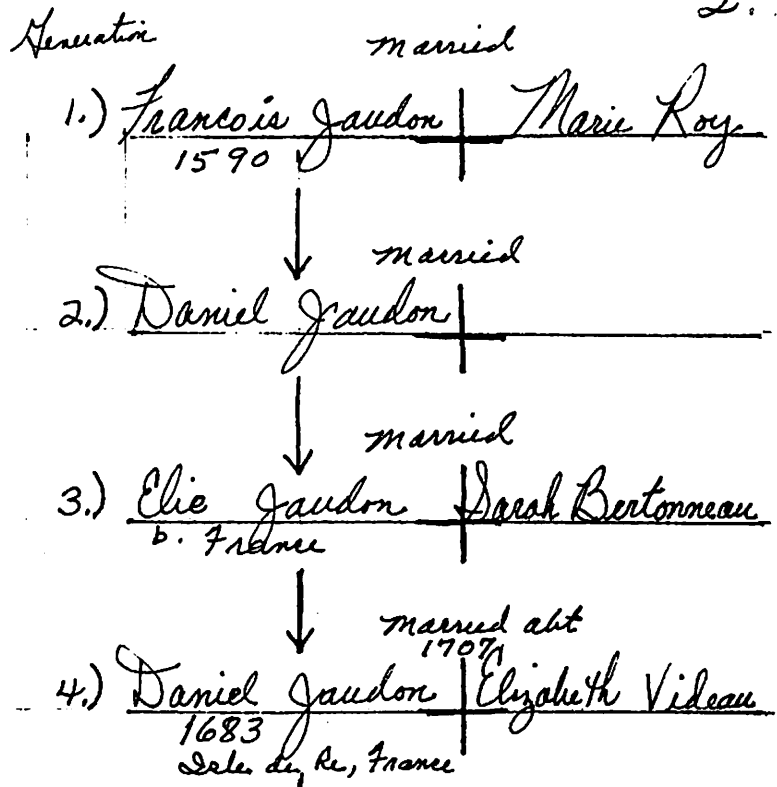 2.
Generation
married
1.) Francois Jaudon Marie Roy
1590
married
2.) Daniel Jaudon
married
3.) Elie Jaudon Sarah Bertonneau
b. France
married abt
1707
4.) Daniel Jaudon Elizabeth Videau
1683
Isle de Re, France